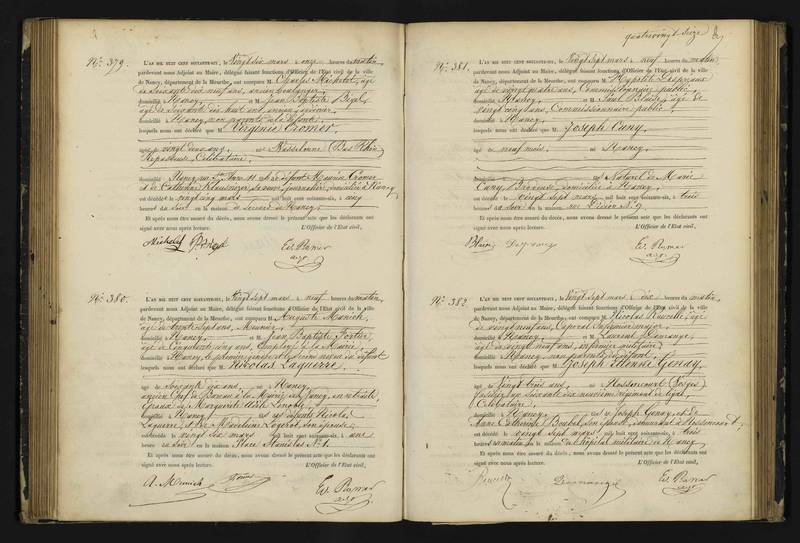 quatrevingt seize
N° 379.
L'AN MIL HUIT CENT SOIXANTE-SIX, le vingt six mars à onze heures du matin,
pardevant nous Adjoint au Maire, délégué faisant fonctions d'Officier de l'Etat civil de la ville
de Nancy, département de la Meurthe, ont comparu M. Charles Michelet, âgé
de soixante six neuf ans, ancien boulanger,
domicilié à Nancy, et M. Jean Baptiste
âgé de soixante six huit ans, ancien
domicilié à Nancy, non parents de la défunte
lesquels nous ont déclaré que M. Virginie Cromer,
âgée de vingt deux ans, née à Wasselonne (Bas Rhin)
Repasseuse, Célibataire,
domiciliée à Nancy, rue
et de Catherine sa veuve, journalière, domiciliée à Nancy
est décédée le vingt cinq mars mil huit cent soixante-six, à cinq
heures du soir en la maison de secours de Nancy.
Et après nous être assuré du décès, nous avons dressé le présent acte que les déclarants ont
signé avec nous après lecture. L'Officier de l'Etat civil,
Michelet
N° 380.
L'AN MIL HUIT CENT SOIXANTE-SIX, le vingt sept mars à neuf heures du matin,
pardevant nous Adjoint au Maire, délégué faisant fonctions d'Officier de l'Etat civil de la ville
de Nancy, département de la Meurthe, ont comparu M. Auguste Munich,
âgé de trente sept ans, Meunier,
domicilié à Nancy, et M. Jean Baptiste Fortier
âgé de cinquante cinq ans, Employé à la Mairie,
domicilié à Nancy, le premier gendre et le second neveu du défunt
lesquels nous ont déclaré que M. Nicolas Laguerre,
âgé de soixante dix ans, né à Nancy,
ancien Chef de Bureau à la Mairie de Nancy, en retraite,
Epoux de Marguerite
domicilié à Nancy, fils des défunts Nicolas
Laguerre, et de Madeleine son épouse,
est décédé le vingt six mars mil huit cent soixante-six, à une
heure du soir en la maison Place Stanislas N° 1.
Et après nous être assuré du décès, nous avons dressé le présent acte que les déclarants ont
signé avec nous après lecture. L'Officier de l'Etat civil,
A. Munich
N° 381.
L'AN MIL HUIT CENT SOIXANTE-SIX, le vingt sept mars à neuf heures du matin,
pardevant nous Adjoint au Maire, délégué faisant fonctions d'Officier de l'Etat civil de la ville
de Nancy, département de la Meurthe, ont comparu M. Hippolite
âgé de vingt quatre ans, Commissionnaire public,
domicilié à Nancy, et M. Paul Blaise, âgé de
vingt cinq ans, Commissionnaire public,
domicilié à Nancy,
lesquels nous ont déclaré que M. Joseph Cuny,
âgé de neuf mois, né à Nancy,
fils Naturel de Marie
Cuny, Brodeuse, domiciliée à Nancy,
est décédé le vingt sept mars mil huit cent soixante-six, à trois
heures du
Et après nous être assuré du décès, nous avons dressé le présent acte que les déclarants ont
signé avec nous après lecture. L'Officier de l'Etat civil,
Blaise
N° 382
L'AN MIL HUIT CENT SOIXANTE-SIX, le vingt sept mars à dix heures du matin,
pardevant nous Adjoint au Maire, délégué faisant fonctions d'Officier de l'Etat civil de la ville
de Nancy, département de la Meurthe, ont comparu M. Nicolas
de vingt neuf ans, Caporal Infirmier major,
domicilié à Nancy, et M. Laurent Demange,
âgé de vingt neuf ans, infirmier militaire,
domicilié à Nancy, non parents du défunt,
lesquels nous ont déclaré que M. Joseph Etienne Genay,
âgé de vingt trois ans, né à (Vosges)
fusilier au soixante dix neuvième régiment de ligne,
Célibataire,
domicilié à Nancy, fils de Joseph Genay, et de
Anne Catherine son épouse,
est décédé le vingt sept mars mil huit cent soixante-six, à trois
heures du matin en la maison de l'hôpital militaire de Nancy.
Et après nous être assuré du décès, nous avons dressé le présent acte que les déclarants ont
signé avec nous après lecture. L'Officier de l'Etat civil,
Demange